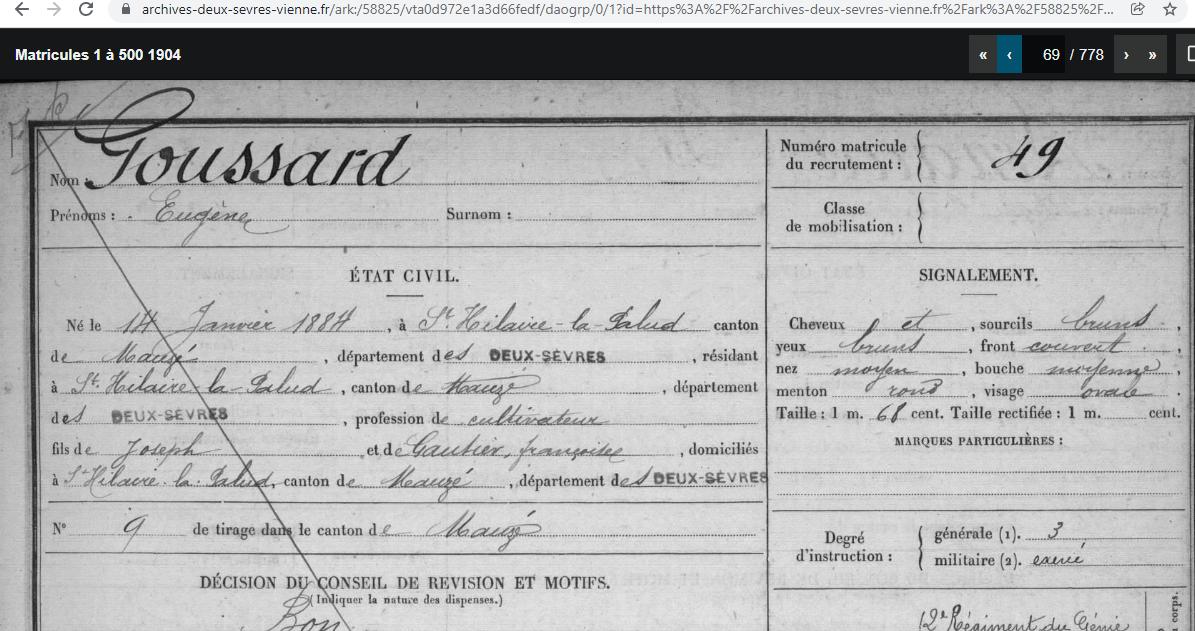 archives-deux-sevres-vienne.fr/ark:/58825/vta0d972e1a3d66fedf/daogrp/0/1?id=https%3A%2F%2Farchives-deux-sevres-vienne.fr%2Fark%3A%2F58825%2F...
Matricules 1 à 500 1904
« ‹ 69 / 778 › »
Nom : Goussard
Prénoms : Eugène Surnom :
Numéro matricule du recrutement : 49
Classe de mobilisation :
ÉTAT CIVIL.
Né le 14 Janvier 1884, à St Hilaire-la-Palud canton
de Mauzé, département des DEUX-SÈVRES, résidant
à St. Hilaire-la-Palud, canton de Mauzé, département
des DEUX-SÈVRES, profession de cultivateur
fils de Joseph et de Gautier, françoise, domiciliés
à St Hilaire-la-Palud, canton de Mauzé, département des DEUX-SÈVRES
N° 9 de tirage dans le canton de Mauzé
DÉCISION DU CONSEIL DE REVISION ET MOTIFS.
(Indiquer la nature des dispenses.)
Bon
SIGNALEMENT.
Cheveux et, sourcils bruns,
yeux bruns, front couvert,
nez moyen, bouche moyenne,
menton rond, visage ovale.
Taille : 1 m. 68 cent. Taille rectifiée : 1 m. cent.
MARQUES PARTICULIÈRES :
Degré d'instruction :
générale (1). 3
militaire (2). exercé
2e Régiment du Génie
corps.